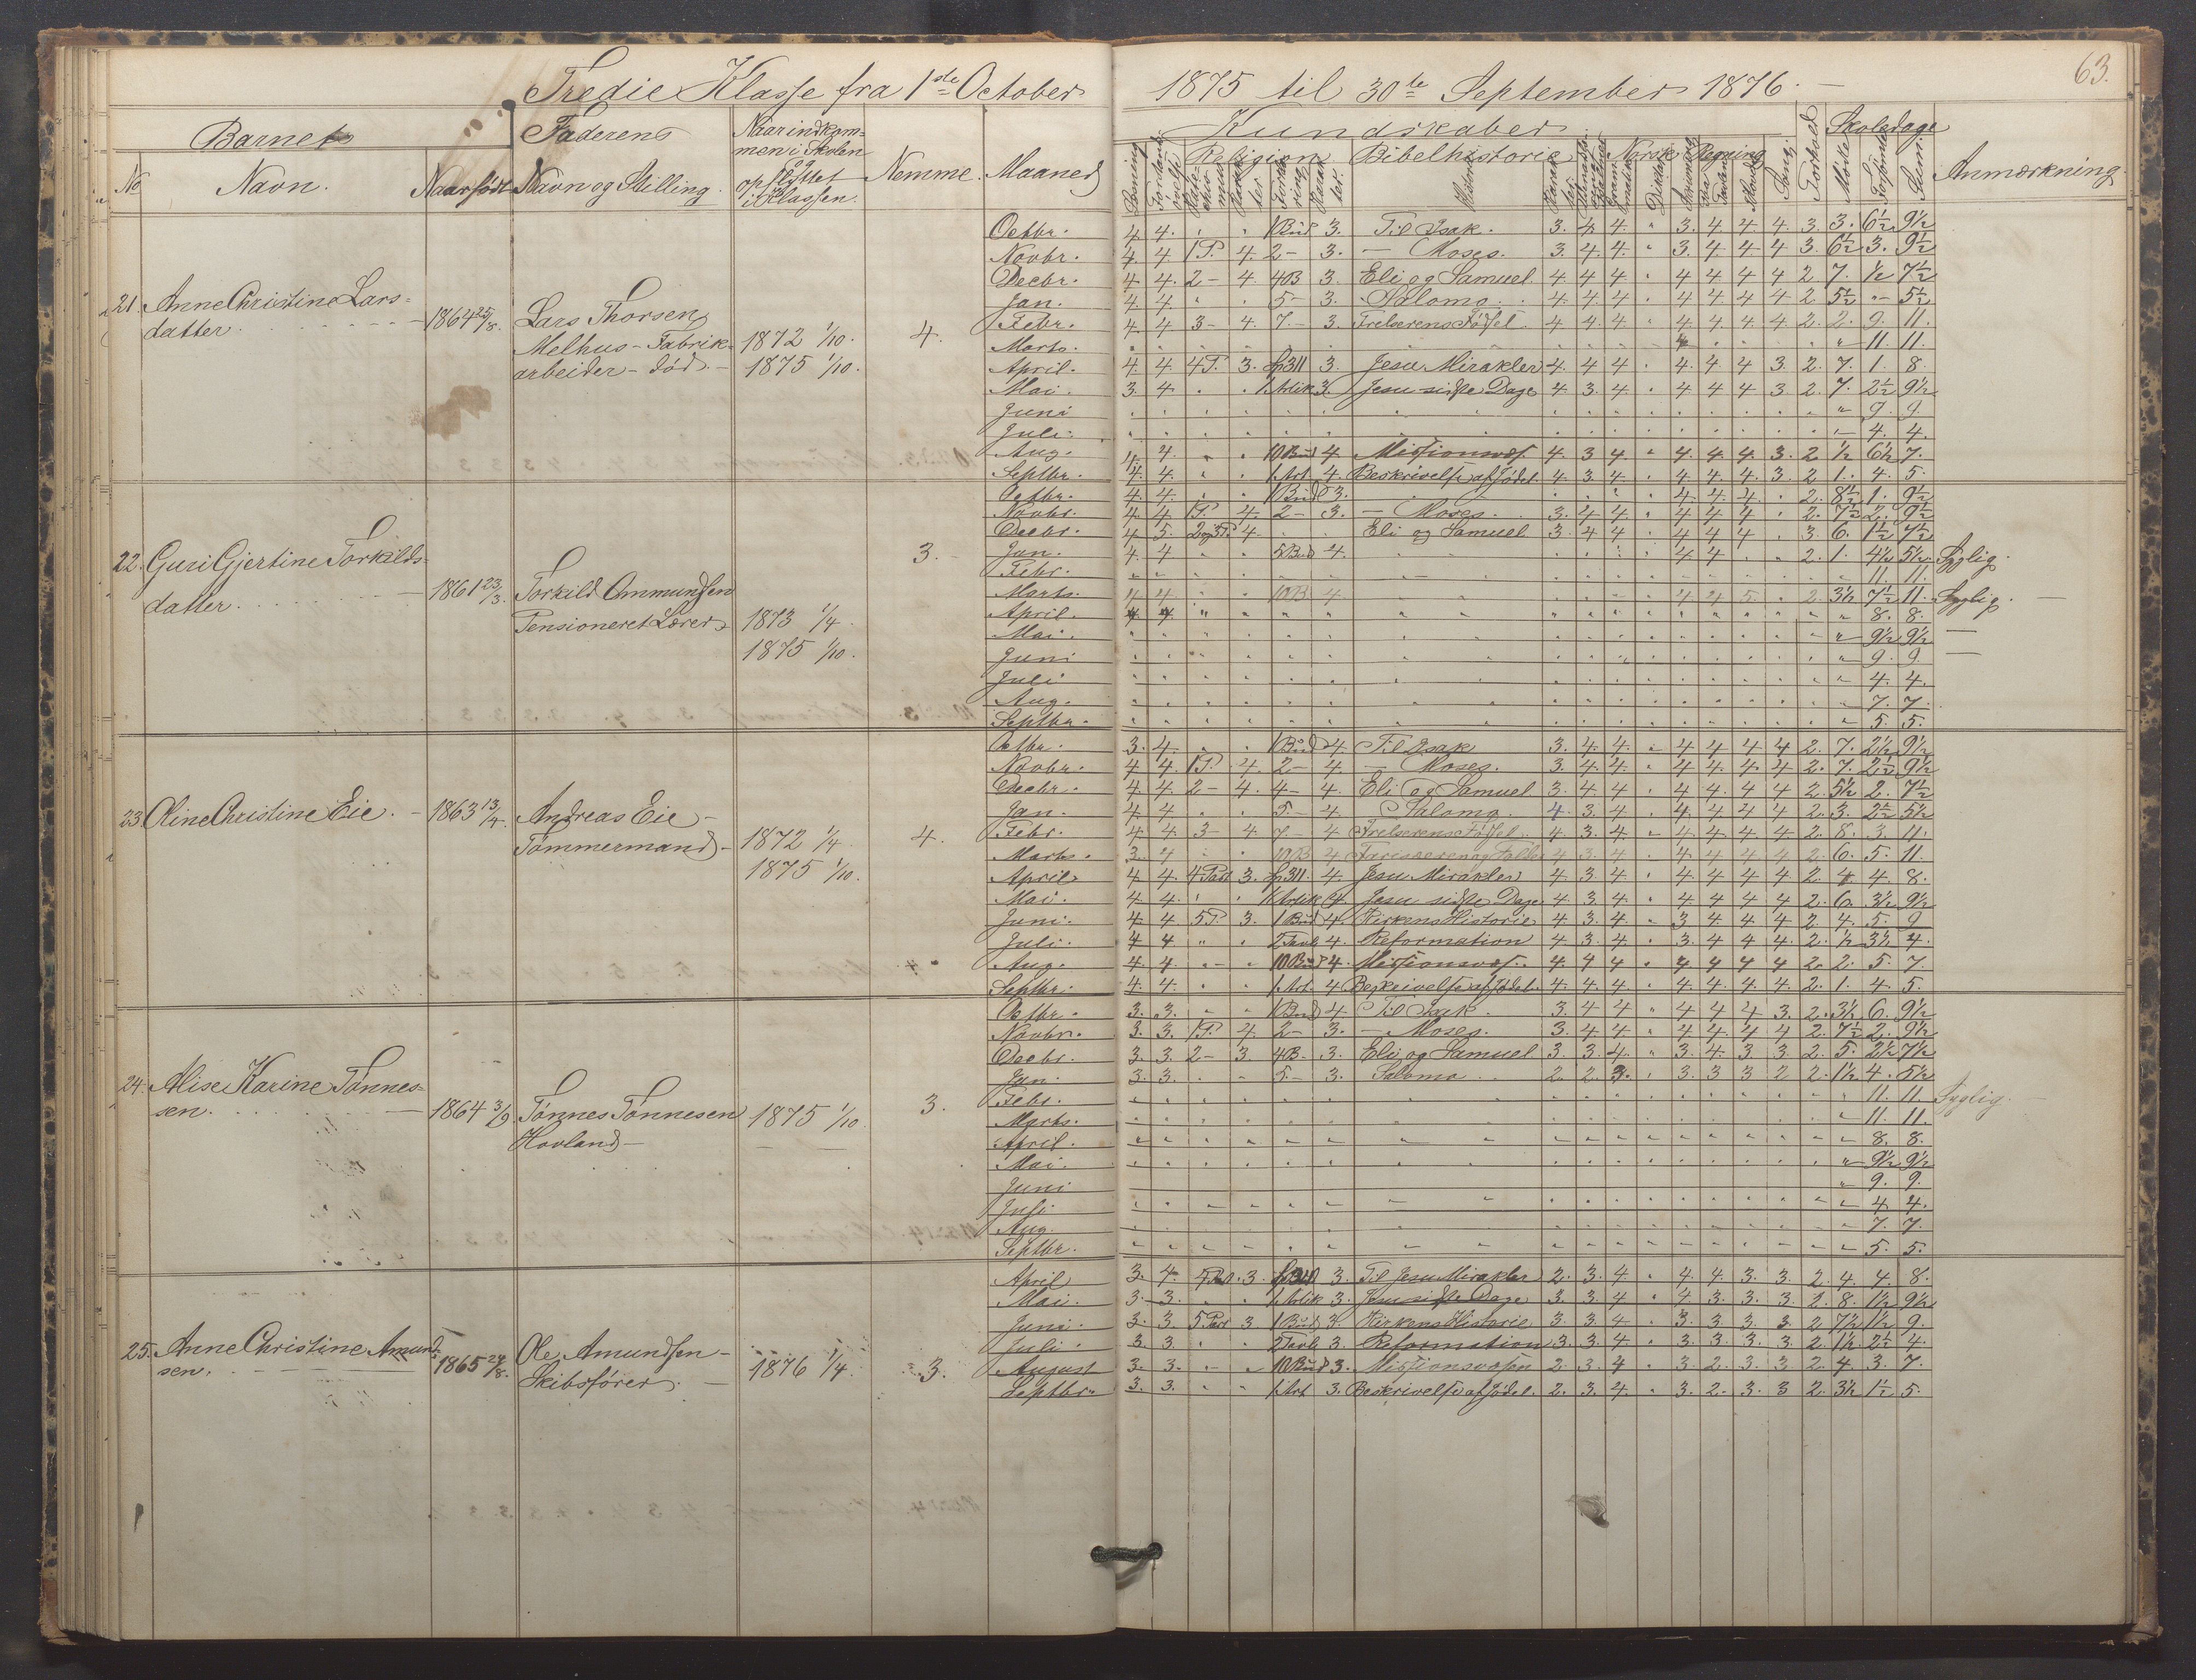 Tredie Klasse fra 1ste October 1875 til 30te September 1876.
63.
Barnets Faderens Naar indkommen i Skolen og opflyttet i Klassen. Nemme. Maaned Kundskaber Forhold Skoledage Anmærkning
No Navn. Naar født Navn og Stilling. Religion Bibelhistorie Norsk Regning Sang. Mødte Forsømte Sum.
21. Anne Christine Lars-
datter. 1864 25/8. Lars Thorsen
Melhus - Fabrik-
arbeider - død. -
1872 1/10.
1875 1/10.
4.
Octbr. 4. 4. 1 Bud 3. Til Isak. 3. 4. 4. 3. 4. 4. 4. 3. 3. 6½ 9½
Novbr. 4. 4. 1 P. 4. 2 - 3. - Moses. 3. 4. 4. 3. 4. 4. 4. 3. 6½ 3. 9½
Decbr. 4. 4. 2 - 4. 4 B 3. Eli og Samuel. 4. 4. 4. 4. 4. 4. 4. 2. 7. ½ 7½
Jan. 4. 4. 5 - 3. Salomo. 4. 4. 4. 4. 4. 4. 4. 2. 5½ " 5½
Febr. 4. 4. 3 - 4. 7. - 3. Frelserens Fødsel. 4. 4. 4. 4. 4. 4. 4. 2. 2. 9. 11.
Marts. " 11. 11.
April. 4. 4. 4 P. 3. 311 3. Jesu Mirakler 4. 4. 4. 4. 4. 4. 3. 2. 7. 1. 8.
Mai. 3. 4. 1 Artik 3. Jesu sidste Dage 4. 3. 4. 4. 4. 4. 3. 2. 7. 2½ 9½
Juni " 9. 9.
Juli. " 4. 4.
Aug. 4. 4. 10 Bud 4. Missionsvæs. 4. 3. 4. 4. 4. 4. 3. 2. ½ 6½ 7.
Septbr. 4. 4. 1. Art. 4. Beskrivelse af Jødel. 4. 3. 4. 4. 4. 4. 3. 2. 1. 4. 5.
22. Guri Gjertine Torkilds-
datter. 1861 23/3. Torkild Ommundsen
Pensioneret Lærer
1873 1/4.
1875 1/10.
3.
Octbr. 4. 4. 1 Bud 3. 4. 4. 4. 2. 8½ 1. 9½
Novbr. 4. 4. 1 P. 4. 2 - 3. - Moses. 3. 4. 4. 4. 4. 4. 2. 7½ 2. 9½
Decbr. 4. 5. 2 og 3 P. 4. Eli og Samuel 3. 4. 4. 4. 4. 4. 3. 6. 1½ 7½
Jan. 4. 4. 5 Bud 4. 4. 4. 2. 1. 4½ 5½ Syglig.
Febr. 11. 11.
Marts. 4. 4. 10 B 4. 4. 4. 5. 2. 3½ 7½ 11. Syglig. -
April. " 8. 8.
Mai. " 9½ 9½ -
Juni " 9. 9. -
Juli " 4. 4.
Aug. 7. 7.
Septbr. " 5. 5.
23. Oline Christine Eie. - 1863 13/4. Andreas Eie -
Tømmermand -
1872 1/4
1875 1/10.
4.
Octbr. 3. 4. 1 Bud 4. Til Isak 3. 4. 4. 4. 4. 4. 4. 2. 7. 2½ 9½
Novbr. 4. 4. 1 P. 4. 2 - 4. - Moses. 3. 4. 4. 4. 4. 4. 4. 2. 7. 2½ 9½
Decbr. 4. 4. 2 - 4. 4 - 4. Eli og Samuel 3. 4. 4. 4. 4. 4. 4. 2. 5½ 2. 7½
Jan. 4. 4. 5 - 4. Salomo. 4. 3. 4. 4. 4. 4. 4. 2. 3. 2½ 5½
Febr. 4. 4. 3 - 4. 7. - 4 Frelserens Fødsel. 4. 3. 4. 4. 4. 4. 4. 2. 8. 3. 11.
Marts. 3. 4 10 B 4 Farisæeren og Tolder 4 3. 4 4. 4 4 4 2. 6. 5. 11.
April 4. 4. 4 Part 3. 311. 4. Jesu Mirakler 4. 3. 4. 4. 4. 4. 4. 2. 4. 4. 8.
Mai. 4. 4. 1 Artik 4. Jesu sidste Dage 4. 3. 4. 4. 4. 4. 4. 2. 6. 3½ 9½
Juni. 4. 4 5 P. 3. 1 Bud 4. Kirkens Historie 4. 3. 4. 3. 4. 4. 4. 2. 4. 5. 9
Juli. 4. 4 2 Tavl 4. Reformation 4. 3. 4. 3. 4. 4. 4. 2. ½ 3½ 4.
Aug. 4. 4. 10 Bud 4. Missionsvæs. 4. 4. 4. 4. 4. 4. 4. 2. 2. 5. 7.
Septbr. 4. 4. 1. Art. 4 Beskrivelse af Jødel. 4. 4. 4. 4. 4. 4. 4. 2. 1. 4. 5.
24. Alise Karine Tønnes-
sen. 1864 3/9. Tønnes Tønnesen
Hovland -
1875 1/10.
3.
Octbr. 3. 3. 1 Bud 4 Til Isak. 3. 4 4 4. 4 4 3. 2. 3½ 6. 9½
Novbr. 3. 3. 1 P. 4. 2 - 3. - Moses. 3. 4. 4. 4. 4. 4. 4. 2. 7½ 2. 9½
Decbr. 3. 3. 2 - 3. 4 B - 3. Eli og Samuel 3. 3. 4. 3. 4. 3. 3. 2. 5. 2½ 7½
Jan. 3. 3. 5 - 3. Salomo 2. 2. 3. 3. 3. 3 2 2. 1½ 4. 5½
Febr. " 11. 11. Syglig. -
Marts. 11. 11.
April. 8. 8.
Mai. " 9½ 9½
Juni " 9. 9.
Juli. 4 4.
Aug. 7. 7.
Septbr. 5. 5.
25. Anne Christine Amund-
sen. 1865 24/8. Ole Amundsen -
Skibsfører. -
1876 1/4.
3.
April 3. 4. 3. 3. Til Jesu Mirakler 2. 3. 4. 4. 4. 3. 3. 2. 4. 4. 8.
Mai. 3. 3. 1 Artik 3. Jesu sidste Dage 3. 3. 4. 4 3. 3. 3. 2. 8. 1½ 9½
Juni. 3. 3. 5 Part 3 1 Bud 3. Kirkens Historie 3. 3. 4. 3. 3. 3. 3. 2 7½ 1½ 9.
Juli. 3. 3. 2 Tavl 3. Reformation 3. 3. 4. 3. 3. 3. 3. 2. 1½ 2½ 4.
August 3. 3. 10 Bud 3. Missionsvæsen 2. 3. 4. 3. 2. 3. 3. 2. 4. 3. 7.
Septbr. 3. 3. 1. Art 3. Beskrivelse af Jødel. 2. 3. 4. 3. 2. 3. 3 2. 3½ 1½ 5.